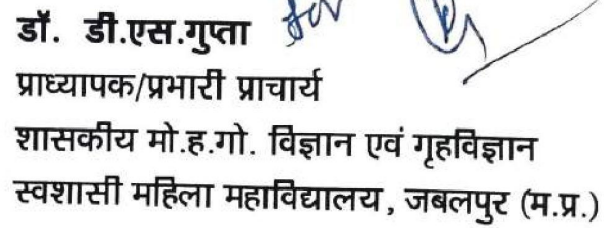 डॉ. डी.एस.गुप्ता for
प्राध्यापक/प्रभारी प्राचार्य
शासकीय मो.ह.गो. विज्ञान एवं गृहविज्ञान
स्वशासी महिला महाविद्यालय, जबलपुर (म.प्र.)